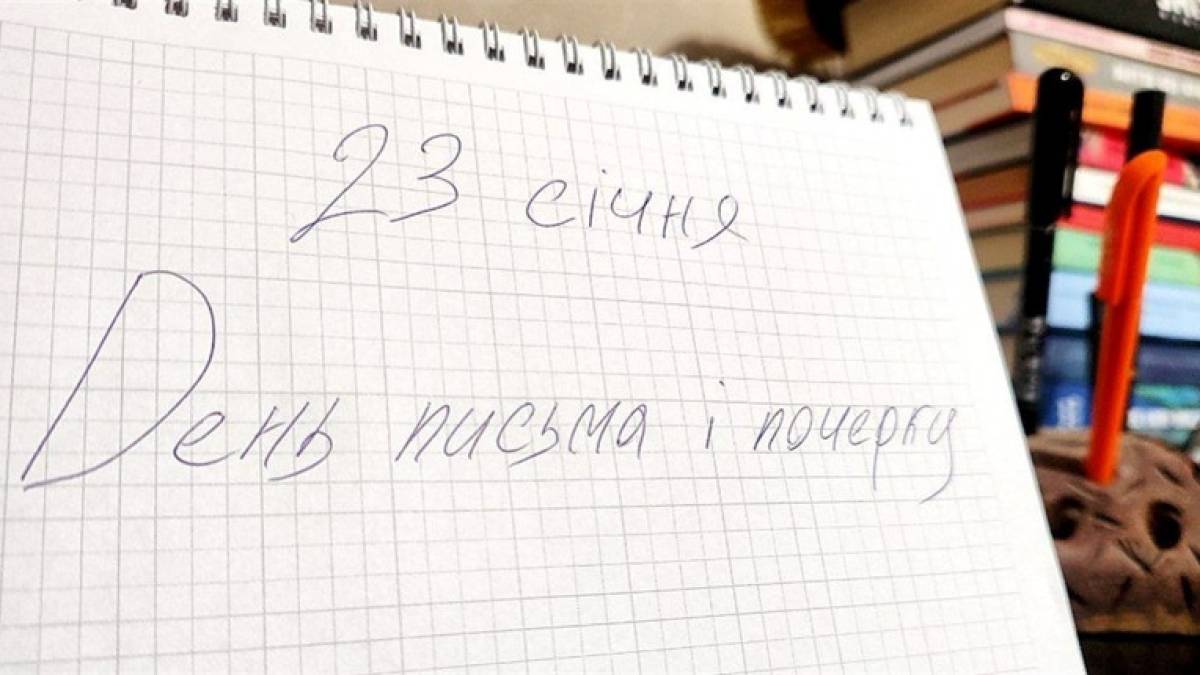 23 січня
День письма і почерку